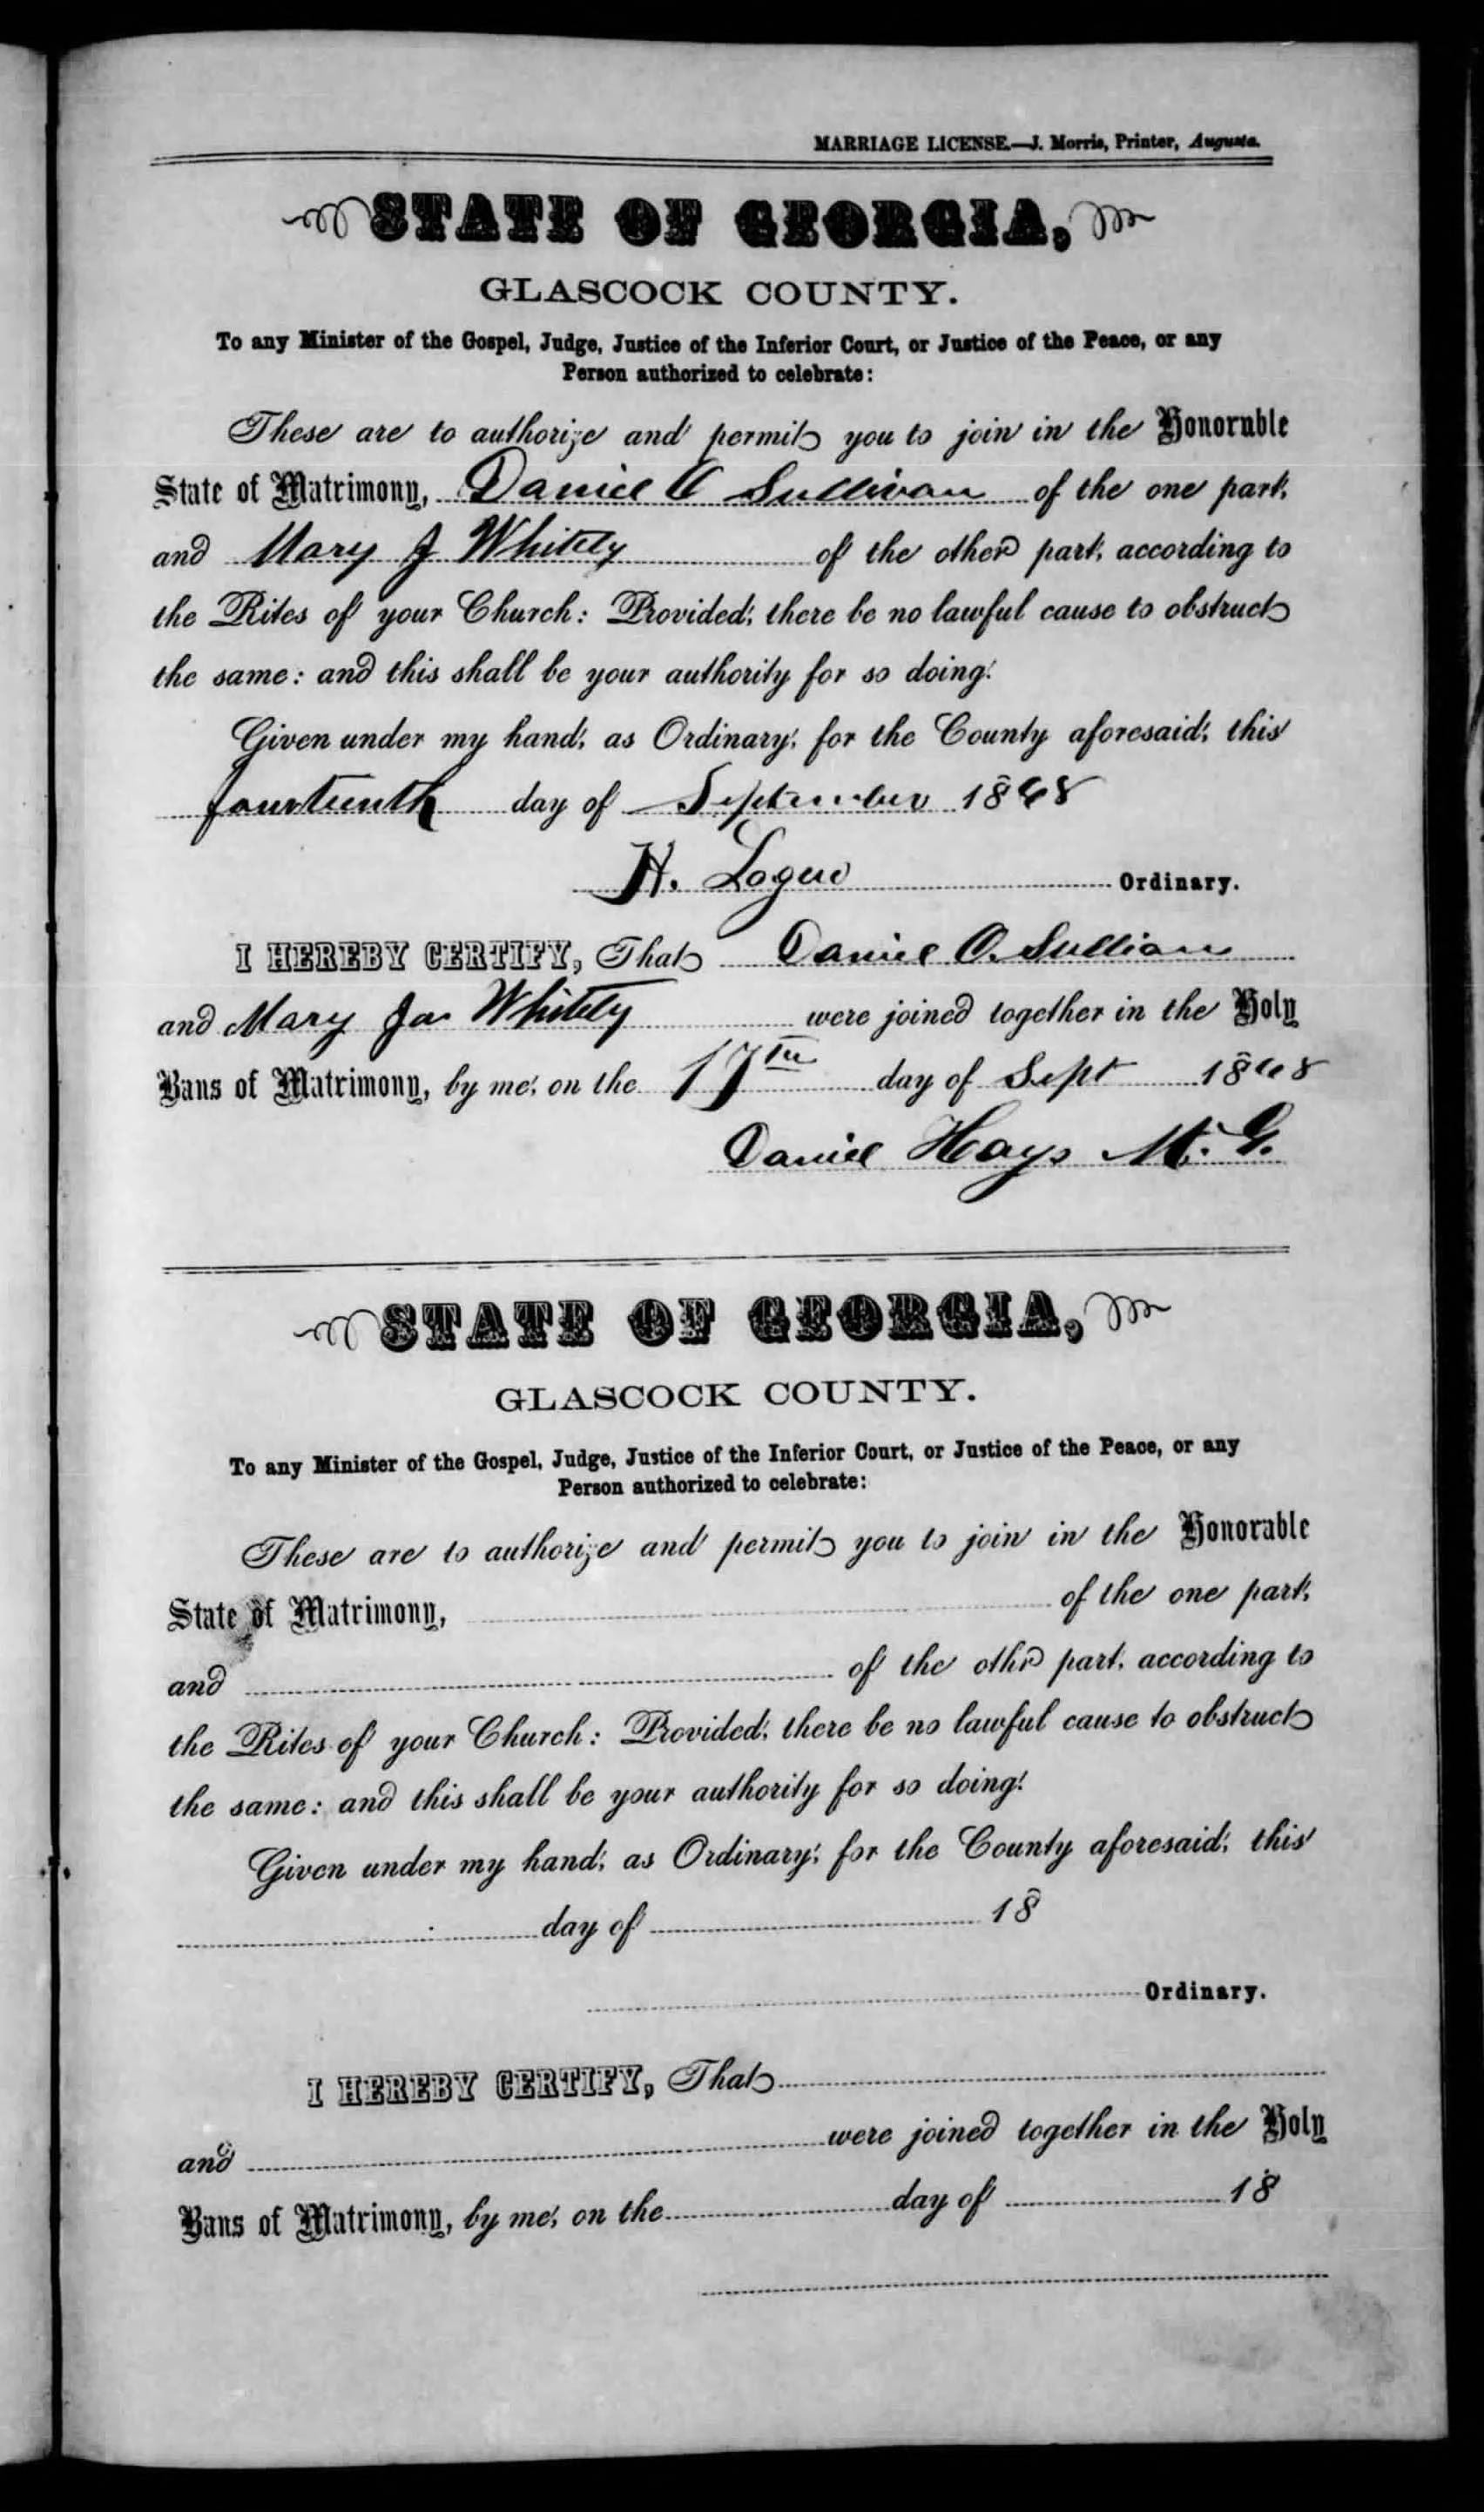 MARRIAGE LICENSE.—J. Morris, Printer, Augusta.
STATE OF GEORGIA,
GLASCOCK COUNTY.
To any Minister of the Gospel, Judge, Justice of the Inferior Court, or Justice of the Peace, or any
Person authorized to celebrate:
These are to authorize and permit you to join in the Honorable
State of Matrimony, Daniel O Sullivan of the one part,
and Mary J Whitely of the other part, according to
the Rites of your Church: Provided, there be no lawful cause to obstruct
the same: and this shall be your authority for so doing.
Given under my hand, as Ordinary, for the County aforesaid, this
fourteenth day of September 1868
H. Logue Ordinary.
I HEREBY CERTIFY, That Daniel O. Sullian
and Mary Ja Whitely were joined together in the Holy
Bans of Matrimony, by me, on the 17th day of Sept 1868
Daniel Hays M. G.
STATE OF GEORGIA,
GLASCOCK COUNTY.
To any Minister of the Gospel, Judge, Justice of the Inferior Court, or Justice of the Peace, or any
Person authorized to celebrate:
These are to authorize and permit you to join in the Honorable
State of Matrimony, of the one part,
and of the othr part, according to
the Rites of your Church: Provided, there be no lawful cause to obstruct
the same: and this shall be your authority for so doing.
Given under my hand, as Ordinary, for the County aforesaid, this
day of 18
Ordinary.
I HEREBY CERTIFY, That
and were joined together in the Holy
Bans of Matrimony, by me, on the day of 18